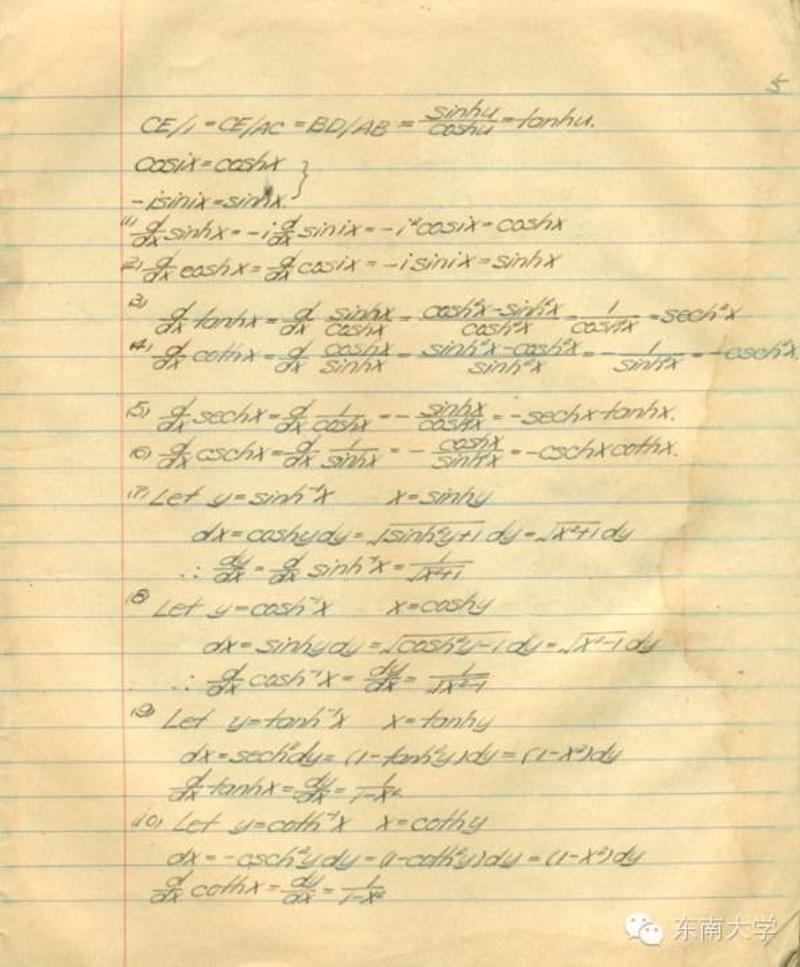 5
CE/1 = CE/AC = BD/AB = sinhu/coshu = tanhu.
cosix = coshx }
-isinix = sinhx.
(1) d/dx sinhx = -i d/dx sinix = -i²cosix = coshx
(2) d/dx coshx = d/dx cosix = -isinix = sinhx
(3) d/dx tanhx = d/dx sinhx/coshx = cosh²x-sinh²x/cosh²x = 1/cosh²x = sech²x
(4) d/dx cothx = d/dx coshx/sinhx = sinh²x-cosh²x/sinh²x = -1/sinh²x = -csch²x.
(5) d/dx sechx = d/dx 1/coshx = -sinhx/cosh²x = -sechx·tanhx.
(6) d/dx cschx = d/dx 1/sinhx = -coshx/sinh²x = -cschx cothx.
(7) Let y=sinh⁻¹x x=sinhy
dx = coshydy = √(sinh²y+1) dy = √(x²+1) dy
∴ dy/dx = d/dx sinh⁻¹x = 1/√(x²+1)
(8) Let y=cosh⁻¹x x=coshy
dx = sinhydy = √(cosh²y-1) dy = √(x²-1) dy
∴ d/dx cosh⁻¹x = dy/dx = 1/√(x²-1)
(9) Let y=tanh⁻¹x x=tanhy
dx = sech²dy = (1-tanh²y)dy = (1-x²)dy
d/dx tanhx = dy/dx = 1/1-x²
(10) Let y=coth⁻¹x x=cothy
dx = -csch²ydy = (1-coth²y)dy = (1-x²)dy
d/dx cothx = dy/dx = 1/1-x²
东南大学